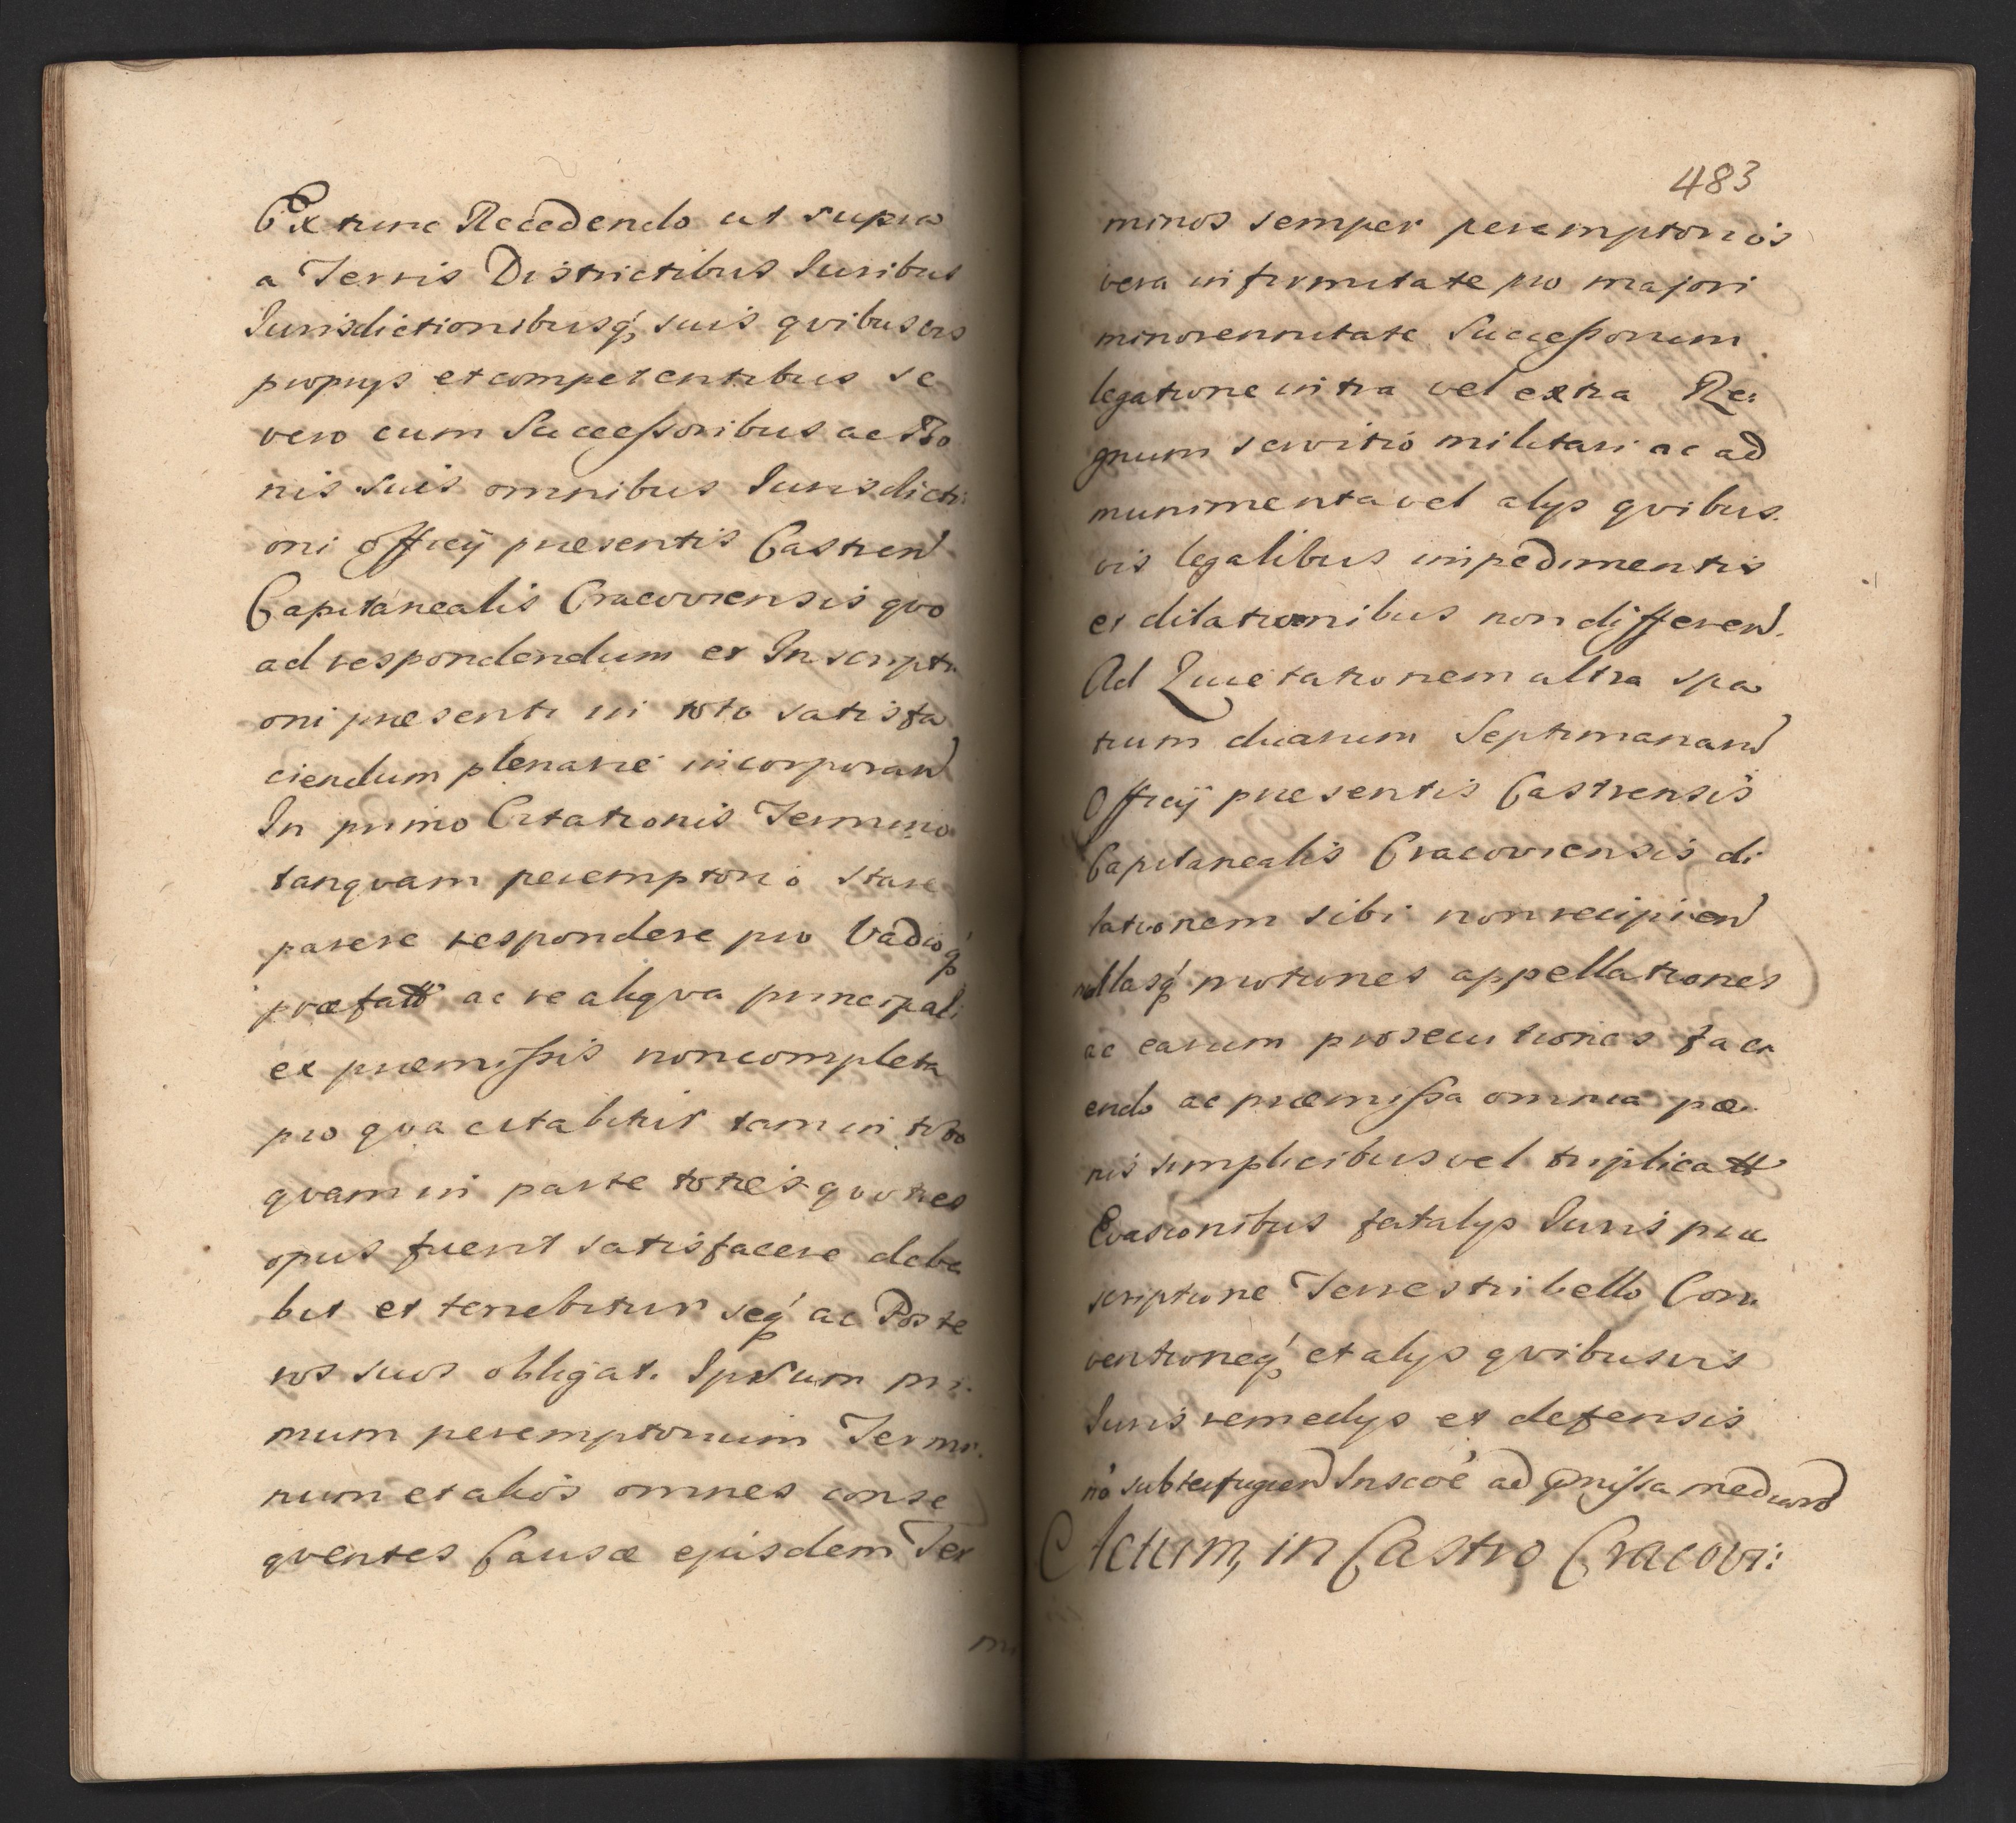 Ex tunc Recedendo ut supra
a Terris Districtibus Iuribus
Iurisdictionibusq́, suis qvibusvis
proprys et competentibus se
vero cum Successoribus ac Bo
nis suis omnibus Iurisdicti:
oni Officÿ præsentis Castren
Capitanealis Cracoviensis qvo
ad respondendum et Inscripti
oni præsenti in toto satisfa
ciendum plenarie incorporan
In primo Citationis Termino
tanqvam peremptorio stare
parere respondere pro Vadioq́
præfatt ac re aliqva principali
ex præmissis noncompleta
pro qva citabitur tam in toto
qvam in parte toties qvoties
opus fuerit satisfacere debe
bit et tenebitur seq́ ac Poste
ros suos obligat. Ipsum pri.
mum peremptorium Termi.
num et alios omnes conse
qventes Causæ ejusdem Ter
mi
483
minos semper peremptorios
vera infirmitate pro majori
minorennitate Successorum
legatione intra vel extra Re:
gnum servitio militari ac ad
munimenta vel alys qvibus.
vis legalibus impedimentis
et dilationibus non differen.
Ad Qvietationem ultra spa
tium duarum Septimanarum
Officÿ præsentis Castrensis
Capitanealis Cracoviensis di
lationem sibi non recipien
nullasq́ motiones appellationes
ac earum prosecutiones faci
endo ac præmissa omnia pæ.
nis simplicibus vel triplicatt
Evasionibus fatalys Iuris præ
scriptione Terrestri bello Con.
ventioneq́ et alys qvibusvis
Iuris remedys et defensis
nō subterfugien Inscōe ad præmissa median
Actum, in Castro Cracovi: